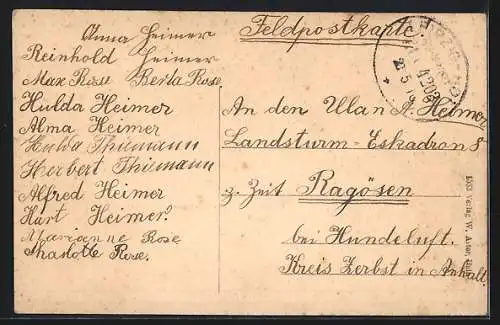 Feldpostkarte
Anna Heimer
Reinhold Heimer
Max Rose Berta Rose.
Hulda Heimer
Alma Heimer
Hulda Thiemann
Herbert Thiemann
Alfred Heimer
Kurt Heimer?
Marianne Rose
Charlotte Rose.
An den Ulan A. Heimer
Landsturm-Eskadron 8
z. Zeit Ragösen
bei Hundeluft.
Kreis Zerbst in Anhalt.
Verlag W.